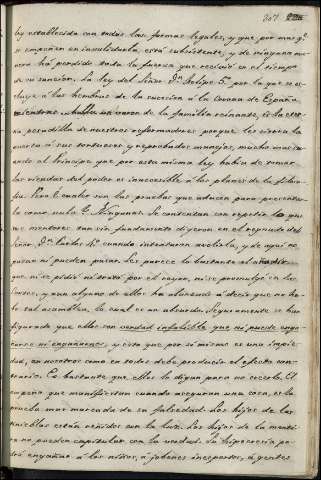 307
ley establecida con todas las formas legales, y que por mas q.e
se empeñen en invalidarla, está subsistente, y de ninguna ma-
nera ha perdido toda la fuerza que recivió en el tiempo
de su sancion. La ley del Señor Dn Felipe 5.º por la que se es-
cluye a las hembras de la sucesion á la corona de España
mientras hubiese un varon de la familia reinante, es la eter-
na pesadilla de nuestros reformadores porque les cierra la
puerta á sus tortuosos y reprobados manejos, mucho mas cu-
ando el Principe que por esta misma ley habia de tomar
las riendas del poder es inaccesible á los planes de la filoso-
fia. Pero ¿cuales son las pruebas que aducen para presentar-
la como nula? Ningunas. Se contentan con repetir lo que
sus mentores tan sin fundamento digeron en el reynado del
Señor Dn Carlos 4.º cuando intentaron abolirla, y de aqui no
pasan ni pueden pasar. Les parece lo bastante el añadir
que ni se pidió ni trató por el reyno, ni se promulgó en las
Cortes, y aun alguno de ellos ha alcanzado a decir que no hu-
bo tal asamblea, lo cual es un absurdo. Seguramente se han
figurado que ellos son verdad infalible que ni puede enga-
ñarse ni engañarnos, y esto que por si mismo es una impie-
dad, en nosotros como en todos debe producir el efecto con-
trario. Es bastante que ellos lo digan para no creerlo. El
empeño que manifiestan cuando aseguran una cosa, es la
prueba mas marcada de su falsedad. Los hijos de las
tinieblas están reñidos con la luz. Los hijos de la menti-
ra no pueden capitular con la verdad. La hipocresia po-
drá engañar á los niños, a jobenes inespertos, á gentes